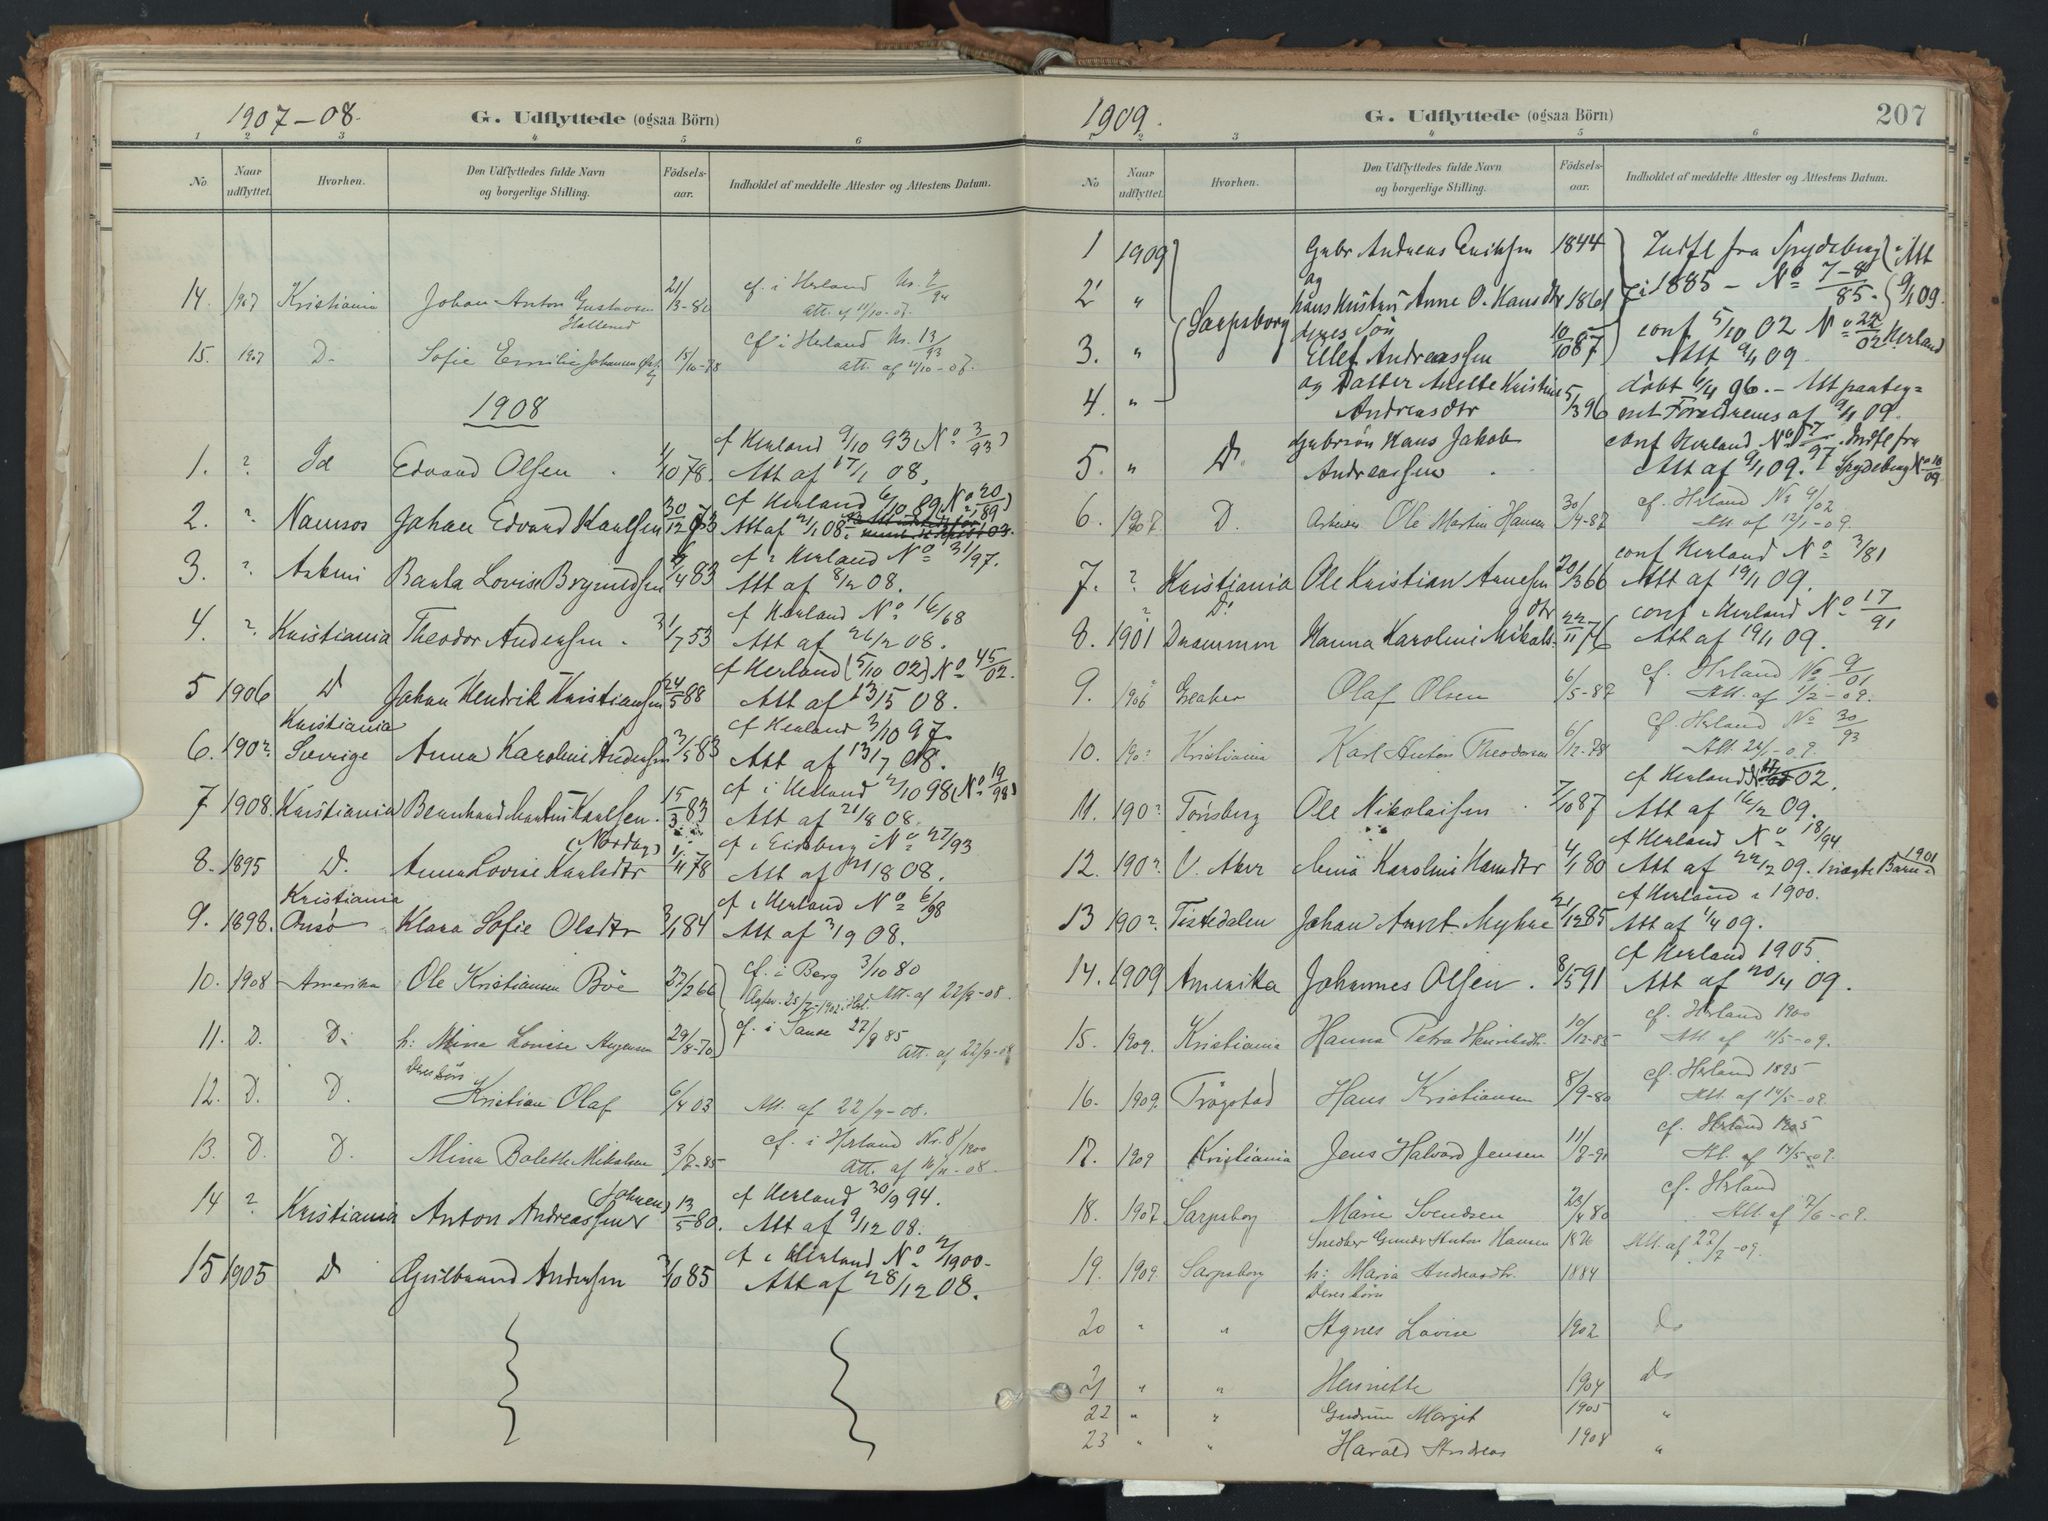 1907-08.
G. Udflyttede (ogsaa Börn)
1 2 3 4 5 6
No
Naar udflyttet.
Hvorhen.
Den Udflyttedes fulde Navn og borgerlige Stilling.
Födsels-aar.
Indholdet af meddelte Attester og Attestens Datum.
14. 1907 Kristiania Johan Anton Gustavsen 21/3-80 cf. i Herland Nr.
att. af 11/10-07.
15. 1907 D- Sofie Emilie Johansen 15/10-78 cf i Herland Nr. 13/93
att. af 11/10-07.
1908
1. ? Id Edvard Olsen 1/10 78. cf Herland 9/10 93 (No 3/93)
Att af 17/1 08.
2. ? Namsos Johan Edvard Karlsen 30/12 73 cf Herland 6/10 89 No 20/89
Att af 21/1 08.
3. ? Askim Louise 83 cf i Herland No 31/97.
Att af 8/2 08.
4. ? Kristiania Theodor Andersen. 31/7 53 cf Herland No 16/68
Att af 26/2 08.
5 1906 D Johan Hendrik Kristiansen 24/5 88 cf Herland (5/10 02) No 45/02.
Att af 13/5 08.
Kristiania
6. 190? Sverige Anna Karoline Andersen 3/5 83 cf Herland 3/10 97
Att af 13/7 08.
7 1908. Kristiania Bernhard Karlsen. 15/3 83 cf i Herland 2/10 98 (No 19/98)
Att af 21/8 08.
8. 1895 D. Anna Lovise Karlsdtr 1/11 78 cf i Eidsberg No 27/93
Att af 21/8 08.
Kristiania
9. 1898. Onsø Klara Sofie Olsdtr 3/1 84 cf i Herland No 6/98
Att af 3/9 08.
10. 1908 Amerika Ole Kristiansen Böe 27/2 66 cf. i Berg 3/10 80
Att. af 22/9-08.
11. D. D. h: Mina Lovise 29/8-70 cf. i 27/9 85
Att. af 22/9-08
Deres børn
12. D. D. Kristian Olaf 6/4 03 Att. af 22/9-08.
13. D. D. Mina Bolette Mikalsen cf. i Herland Nr. 8/1900
Att. af 16/11-08.
14 ? Kristiania Anton Andreassen 13/5 80. cf Herland 30/9 94.
Att af 9/12 08.
15 1905 D Gulbrand Andersen 3/10 85 cf i Herland No 2/1900.
Att af 28/12 08.
1909.
G. Udflyttede (ogsaa Börn)
207
1 2 3 4 5 6
No
Naar udflyttet.
Hvorhen.
Den Udflyttedes fulde Navn og borgerlige Stilling.
Födsels-aar.
Indholdet af meddelte Attester og Attestens Datum.
1 1909 Gbr Andreas Eriksen 1844 Indfl fra Spydeberg Att
og
2 " hans Hustru Anne O. Hansdtr 1861 i 1885 - No 7-8/85. 9/1 09.
Sarpsborg
deres Søn
3. " Ellef Andreassen 10/10 87 conf 5/10 02 No 22/02 Herland
Att 9/1 09.
4. " og Datter Anette Kristine 5/3 96 døbt 6/4 96. - Att paateg-
Andreasdtr net Forældrenes af 9/1 09.
5. " D. Gubrsøn Hans Jakob conf Herland Indfl fra
Andreassen Att af 9/1 09. Spydeberg No
6. 1907. D. Arbeider Ole Martin Hansen 30/4-87 cf. Herland No 4/02
Att. af 12/1-09.
7. ? Kristiania Ole Kristian Arnesen 20/3 66 conf Herland No 3/81
Att af 19/1 09.
D.
8. 1901 Drammen Hanna Karoline Mikalsdtr 22/11 76 conf i Herland No 17/91
Att af 19/1 09.
9. 1906 Greaker Olaf Olsen 6/5-87 cf. Herland No 9/01
Att. af 1/2-09.
10. 190? Kristiania Karl Anton Theodorsen 6/12-78 cf. Herland No 30/93
11. 190? Tönsberg Ole Nikolaisen 7/10 87 cf Herland 02.
Att af 16/2 09.
12. 190? V. Aker Karoline Hansdtr 4/1 80 cf Herland No 18/94
Att af 22/2 09.
13 190?. Tistedalen Johan Myhre 21/12 85 cf Herland i 1900.
Att af 1/4 09.
14. 1909 Amerika Johannes Olsen. 8/5 91 cf Herland 1905.
Att af 20/4 09.
15. 1909. Kristiania Hanna Petra Henriksdtr. 10/12-85 cf. Herland 1900
Att af 11/5-09.
16. 1909. Trögstad Hans Kristiansen 8/9-80 cf. Herland 1895
Att. af 14/5-09.
17. 1909 Kristiania Jens Halvard Jensen cf. Herland 1905
Att. af 14/5-09.
18. 1907 Sarpsborg Marie Svendsen 23/4 80 cf. Herland
Att. af 7/6-09.
Snedker Gunder Anton Hansen 1876 Att. af 27/7-09.
19. 1909. Sarpsborg h: Maria Andreasdtr. 1884
Deres børn
20 " " Agnes Lovise 1902 Do
21 " " Henriette 1904 Do
22 " " Gudrun Margit 1905 "
23 " " Harald Andreas 1908 "